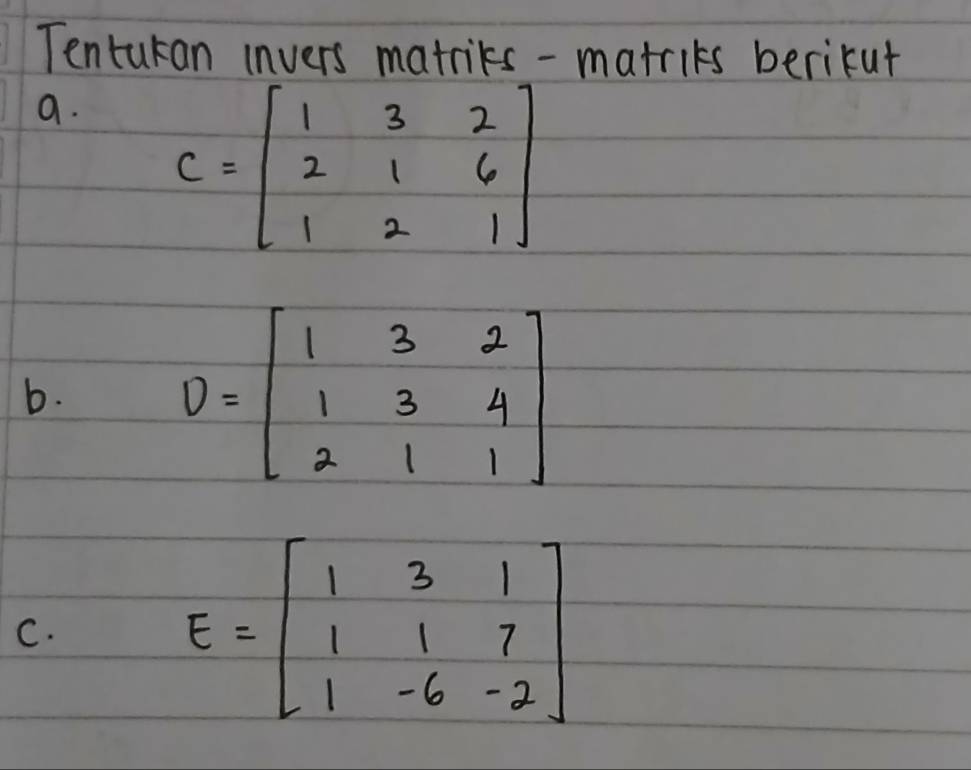 Tentukan invers matriks - matriks berikut
a.
C = [ 1 3 2
2 1 6
1 2 1 ]
b. D = [ 1 3 2
1 3 4
2 1 1 ]
c. E = [ 1 3 1
1 1 7
1 -6 -2 ]